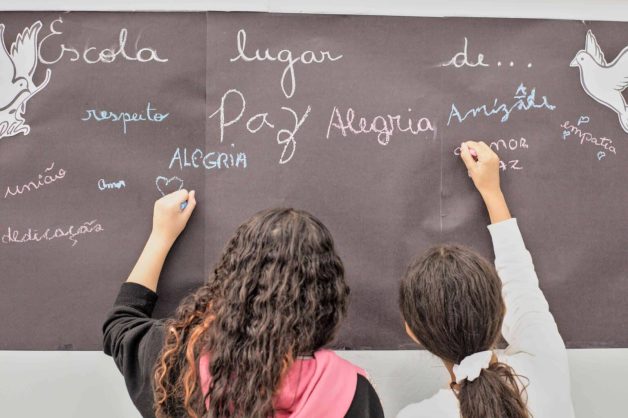 Escola lugar de...
respeito Paz Alegria Amizade
empatia
ALEGRIA
AMOR
PAZ
união amor
dedicação